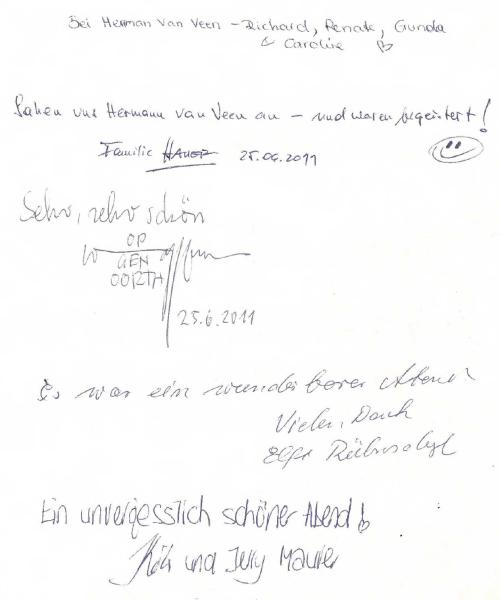 Bei Herman van Veen – Richard, Renate, Gunda
& Caroline
Sahen uns Hermann van Veen an – und waren begeistert!
Familie Hauer 25.06.2011
Sehr, sehr schön
OP
GEN
OORTH
25.6.2011
Es war ein wunderbarer Abend
Vielen Dank
Ein unvergesslich schöner Abend!
und Jerry Maurer